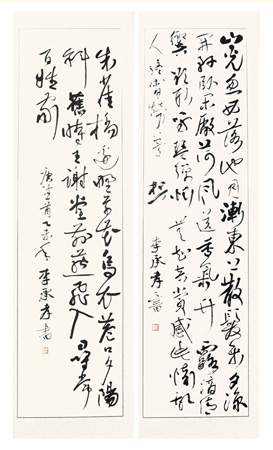 山光忽西落池月漸東上散髮乘夕涼
開軒卧閑敞荷風送香氣竹露滴清
響欲取鳴琴彈恨無知音賞感此懷故
人終宵勞夢想
李承孝書
朱雀橋邊野草花烏衣巷口夕陽
斜舊時王謝堂前燕飛入尋常
百姓家
唐詩一首乙未 李承孝書